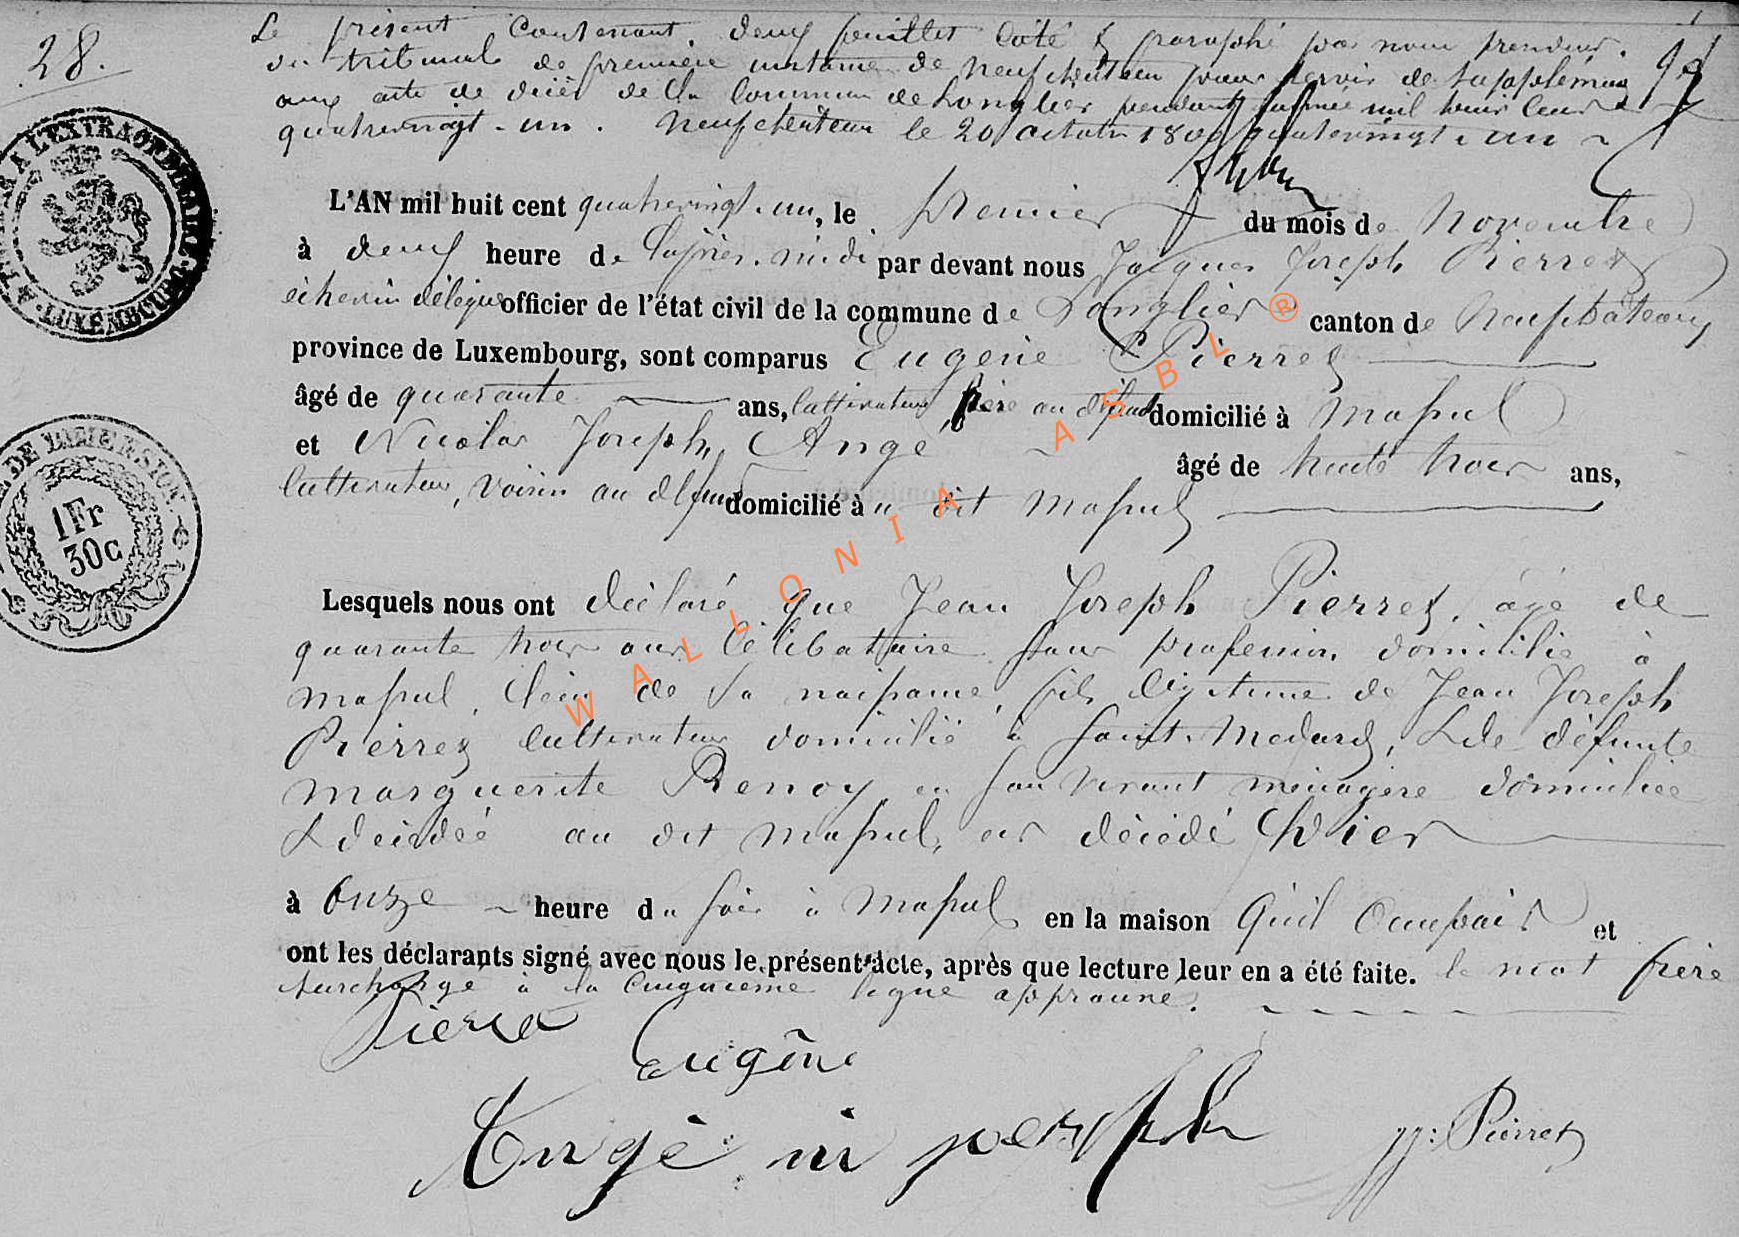 28.
Le présent contenant deux feuillets coté & paraphé par nous president
du tribunal de première instance de Neufchâteau pour servir de supplément
aux acte de décès de la commune de Longlier pendant l'année mil huit cent
quatrevingt-un. Neufchâteau le 20 octobre 1800 quatrevingt-un
TIMBRE A L'EXTRAORDINAIRE
LUXEMBOURG
L'AN mil huit cent quatrevingt-un, le premier du mois de Novembre
à deux heure de l'après-midi par devant nous Jacques Joseph Pierret
échevin délégué officier de l'état civil de la commune de Longlier canton de Neufchâteau
province de Luxembourg, sont comparus Eugène Pierret
âgé de quarante ans, cultivateur frère au défunt domicilié à Massul
et Nicolas Joseph Angé âgé de trente trois ans,
cultivateur, voisin au défunt domicilié à u dit Massul
1Fr
30c
Lesquels nous ont déclaré que Jean Joseph Pierret, âgé de
quarante trois ans célibataire sans profession domicilié à
Massul, lieu de sa naissance, fils légitime de Jean Joseph
Pierret cultivateur domicilié à Saint-Medard, & de défunte
Marguerite Renoy en son vivant ménagère domiciliée
& décédée au dit Massul, est décédé hier
à Onze heure du soir à Massul en la maison qu'il occupait et
ont les déclarants signé avec nous le présent acte, après que lecture leur en a été faite. le mot frère
surchargé à la cinquième ligne approuvé.
Pierret
Eugène
Angé ni joseph
JJ: Pierret
WALLONIA ASBL ®